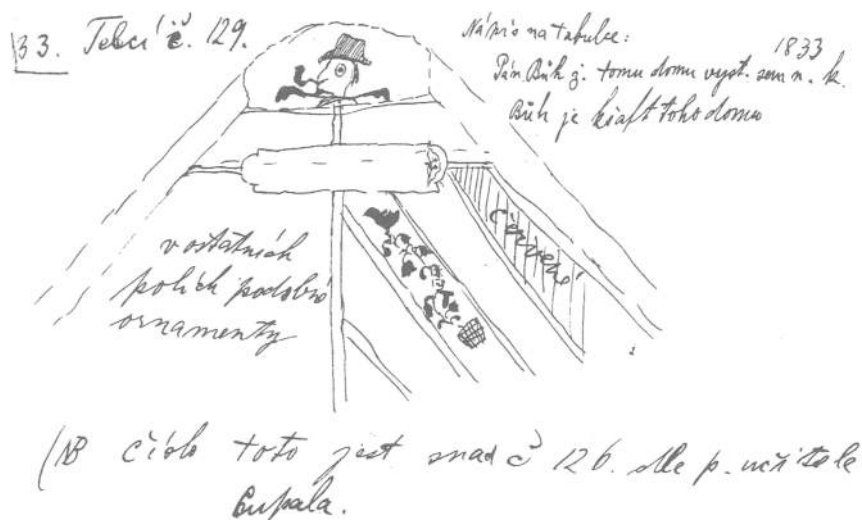 33. Telecí č. 129.
Nápis na tabulce:
1833
Pán Bůh ž. tomu domu vyst. sem n. k.
Bůh je kšaft toho domu
červené
v ostatních
polích podobné
ornamenty
(NB číslo toto jest snad č 126. dle p. učitele
Cupala.